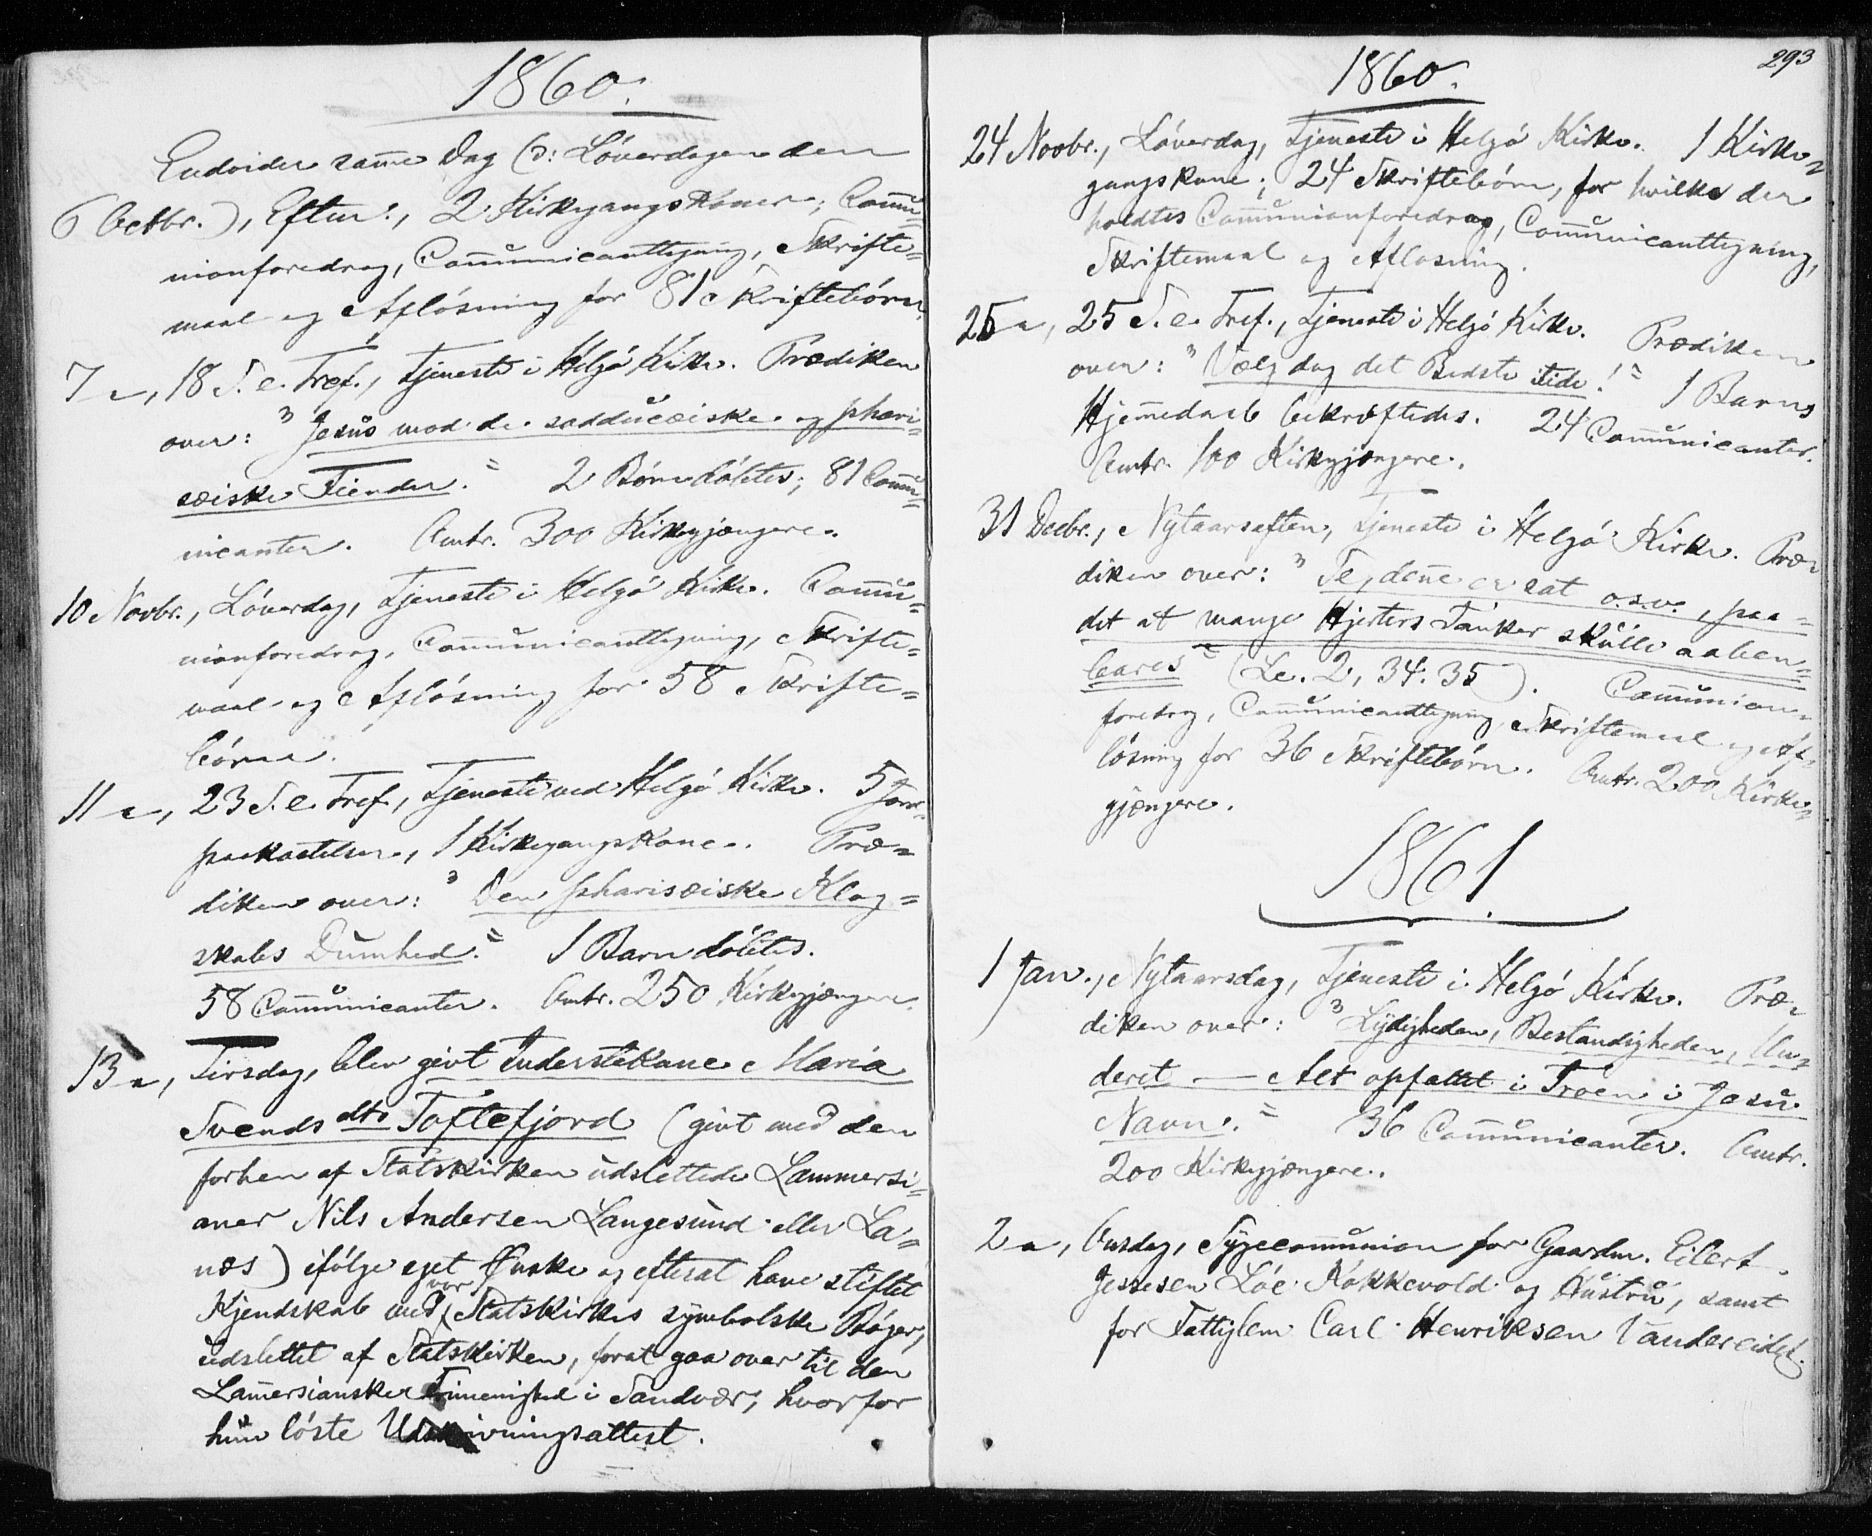 1860.
Endvider samme Dag (ɔ: Löverdagen den
6 Octbr.), Efterm., 2 Kirkegangskoner; Commu=
nionforedrag, Communicanttegning, Skrifte=
maal og Aflösning for 81 Skriftebörn.
7 –, 18 S. e. Tref., Tjeneste i Helgö Kirke. Prædiken
over: "Jesus mod de sadducæiske og phari=
sæiske Fiender." 2 Börn döbtes; 81 Commu=
nicanter. Omtr. 300 Kirkegjængere.
10 Novbr., Löverdag, Tjeneste i Helgö Kirke. Commu=
nionforedrag, Communicanttegning, Skrifte=
maal og Aflösning for 58 Skrifte=
börn.
11 –, 23 S. e. Tref., Tjeneste ved Helgö Kirke. 5 Jord=
paakastelser, 1 Kirkegangskone. Præ=
diken over: "Den pharisæiske Klog=
skabs Dumhed." 1 Barn döbtes.
58 Communicanter. Omtr. 250 Kirkegjængere.
13 –, Tirsdag, blev givt Inderstekone Maria
Svendsdtr Toftefjord (givt med den
forhen af Statskirken udslettede Lammersi=
aner Nils Andersen Langesund eller La=
næs) ifölge eget Önske og efterat have stiftet
Kjendskab med vor Statskirkes symbolske Böger,
udslettet af Statskirken, forat gaa over til den
Lammersianske Frimenighed i Sandvær, hvorfor
hun löste Udskrivningsattest.
293
1860.
24 Novbr., Löverdag, Tjeneste i Helgö Kirke. 1 Kirke=
gangskone; 24 Skriftebörn, for hvilke der
holdtes Communionforedrag, Communicanttegning,
Skriftemaal og Aflösning.
25 –, 25 S. e. Tref., Tjeneste i Helgö Kirke. Prædiken
over: "Vælg dog det Bedste itide!" 1 Barns
Hjemmedaab bekræftedes. 24 Communicanter.
Omtr. 100 Kirkegjængere.
31 Decbr., Nytaarsaften, Tjeneste i Helgö Kirke. Præ=
diken over: "Se, denne er sat o.s.v., paa=
det at mange Hjerters Tanker skulle aaben=
bares" (Lc. 2, 34. 35). Communion=
foredrag, Communicanttegning, Skriftemaal og Af=
lösning for 36 Skriftebörn. Omtr. 200 Kirke=
gjængere.
1861.
1 Jan., Nytaarsdag, Tjeneste i Helgö Kirke. Præ=
diken over: "Lydigheden, Bestandigheden, Un=
deret — Alt opfattet i Troen i Jesu
Navn." 36 Communicanter. Omtr.
200 Kirkegjængere.
2 –, Onsdag, Sygecommunion for Gaardm. Eilert
Jessesen Löe Kokkevold og Hustru, samt
for Fattiglem Carl Henriksen Vandereidet.